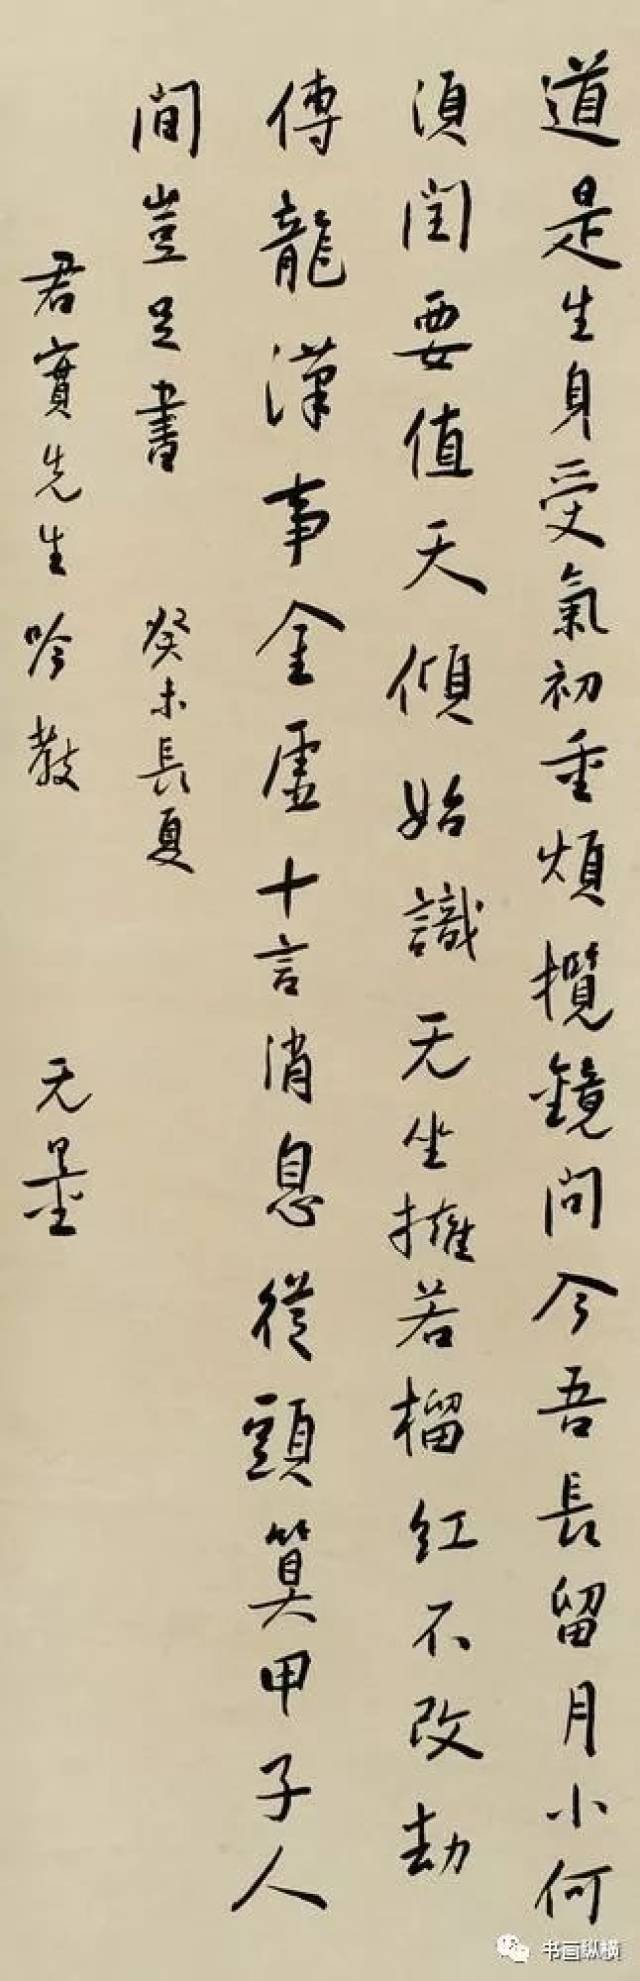 道是生身受氣初重煩攬鏡問今吾長留月小何
須閏要值天傾始識无坐擁若榴紅不改劫
傳龍漢事全虛十言消息從頭算甲子人
間豈足書 癸未長夏
君實先生吟教 无量
书画纵横